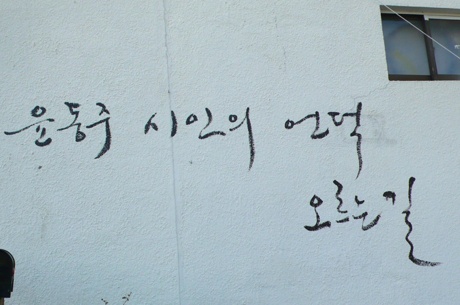 윤동주 시인의 언덕
오르는 길